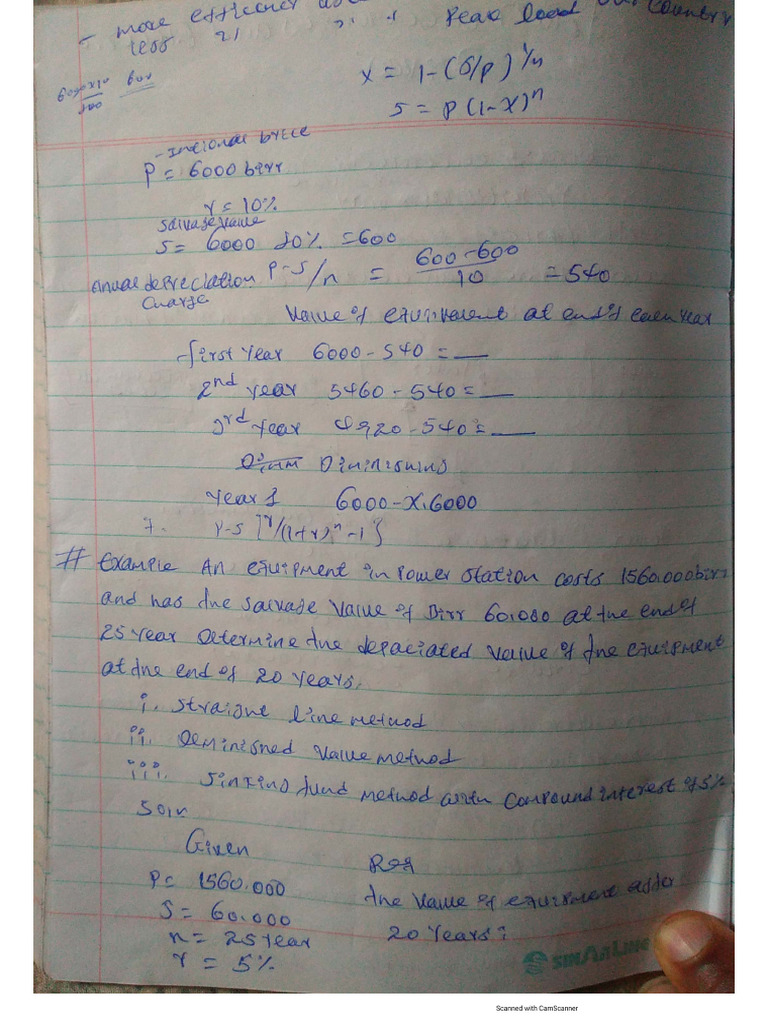 - more efficiency
less Peak load our country
6000x10 600
100
x = 1-(S/p)^1/n
S = p(1-x)^n
P = 6000 birr
r = 10%
Salvage value
S = 6000 10% = 600
Annual depreciation P-S/n = 600-600/10 = 540
Charge
Value of equipment at end of each year
- first year 6000 - 540 = __
2nd year 5460 - 540 = __
3rd year 4920 - 540 = __
Dinin Diminising
Year 1 6000 - X.6000
P-S [r/(1+r)^n - 1]
# Example An equipment in power station costs 1560.000 birr
and has the salvage value of Birr 60.000 at the end of
25 year Determine the depaciated value of the equipment
at the end of 20 years.
i. straight line method
ii. Deminished value method
iii. sinking fund method with compound interest of 5%
Soln
Given Req
P = 1560.000 the value of equipment after
S = 60.000 20 years?
n = 25 year
r = 5%
SINARLINE
Scanned with CamScanner